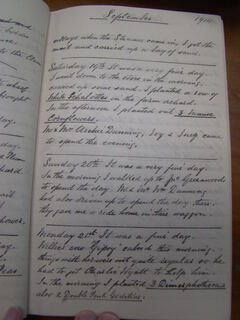 September 1914.
village when the Steamer came in, I got the
mail and carried up a bag of sand.
Saturday 19th It was a very fine day.
I went down to the store in the morning,
carried up some sand. I planted a row of
White Schallottes in the farm orchard.
In the afternoon I planted out 3 Mauve
Cornflowers.
Mr & Mrs Archie Dunning, Joy & Snez came to
spend the evening.
Sunday 20th It was a very fine day.
In the morning I walked up to Jn. Greenwoods
to spend the day. Mr & Mrs Wm Dunning
had also driven up to spend the day there.
They gave me a ride home in their waggon.
Monday 21st It was a fine day.
Willie and calved this morning,
things with her were not quite regular so he
had to get Charlie Hyatt to help him.
In the morning I planted 3 Dimorphothecas
also 2 Double Pink Godetias.